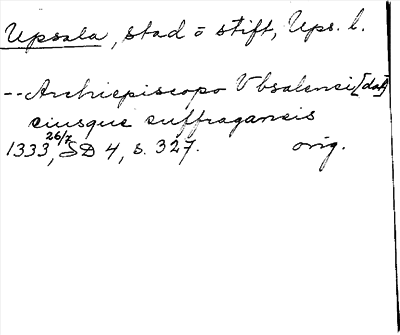 Upsala, stad o stift, Ups. l.
-- Archiepiscopo Vbsalensi [dat]
eiusque suffraganeis
1333 26/7, SD 4, s. 327. orig.